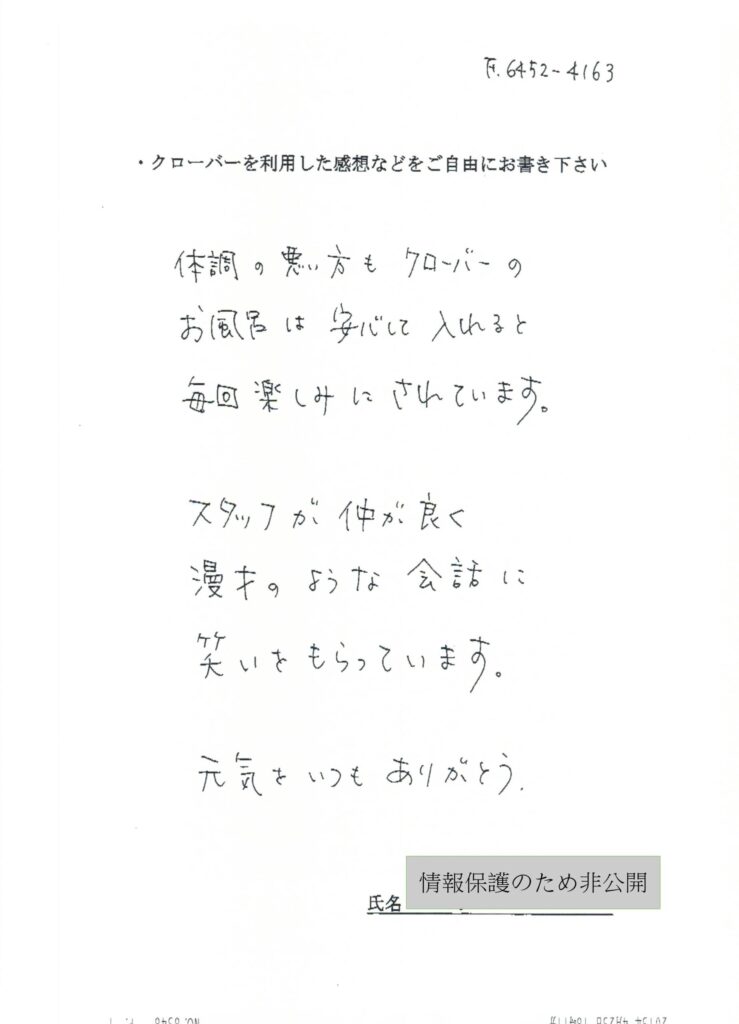 F.6452-4163
・クローバーを利用した感想などをご自由にお書き下さい
体調の悪い方も クローバーの
お風呂は 安心して 入れると
毎回 楽しみに されています。
スタッフが 仲が良く
漫才の ような 会話に
笑いを もらっています。
元気を いつも ありがとう.
情報保護のため非公開
氏名